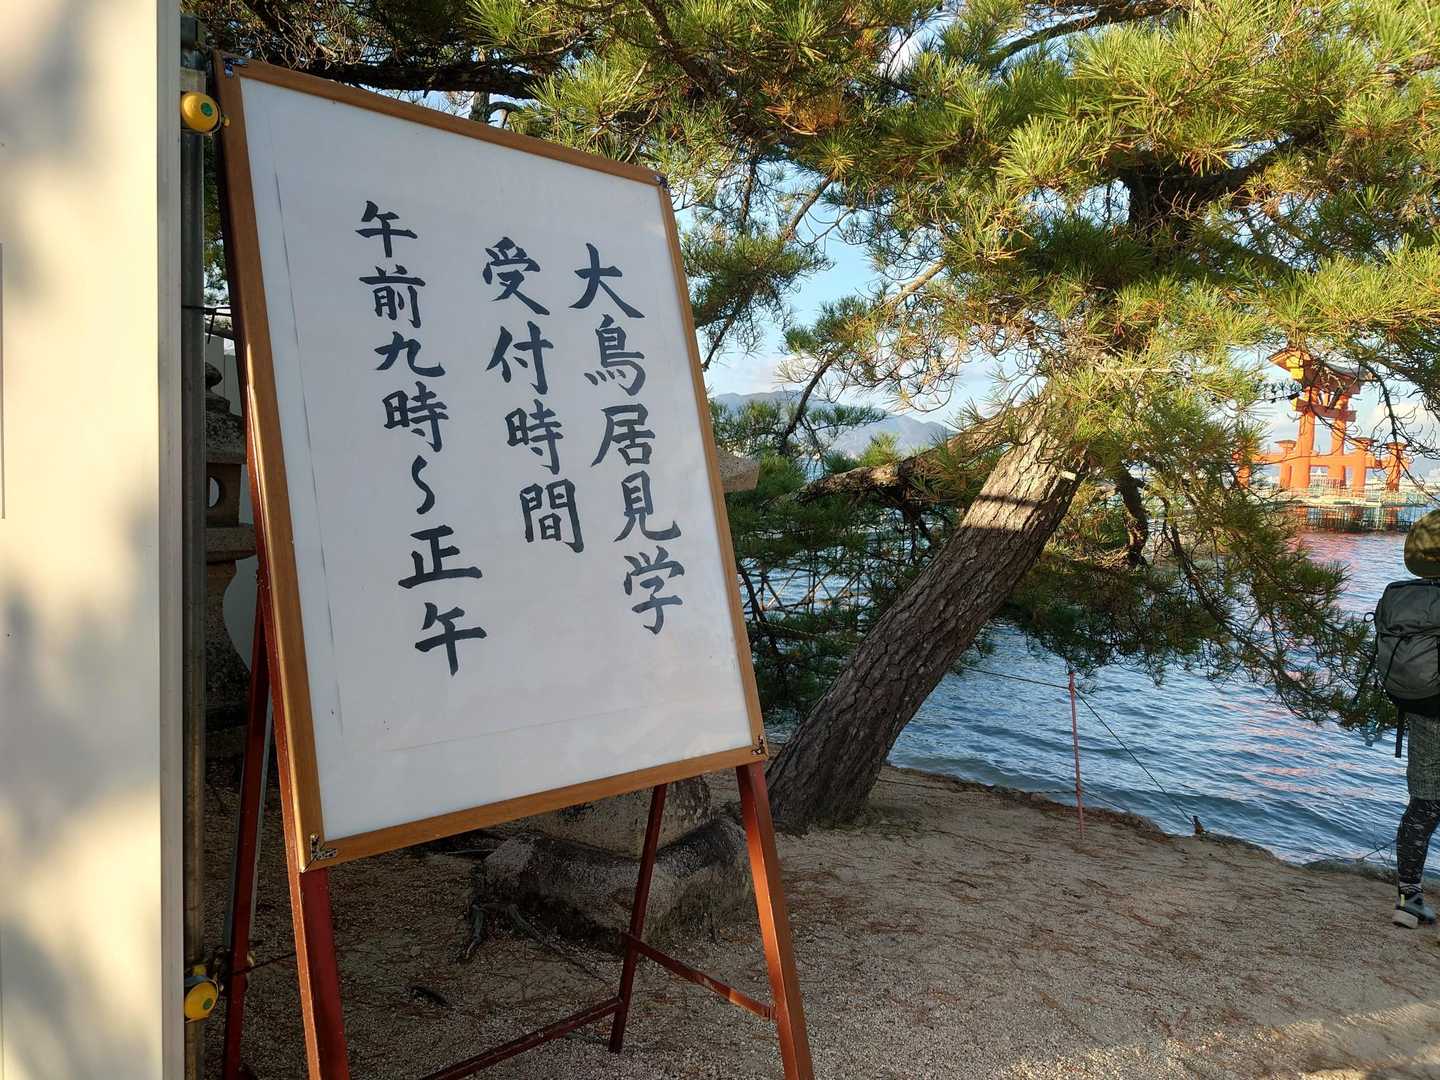 大鳥居見学
受付時間
午前九時〜正午